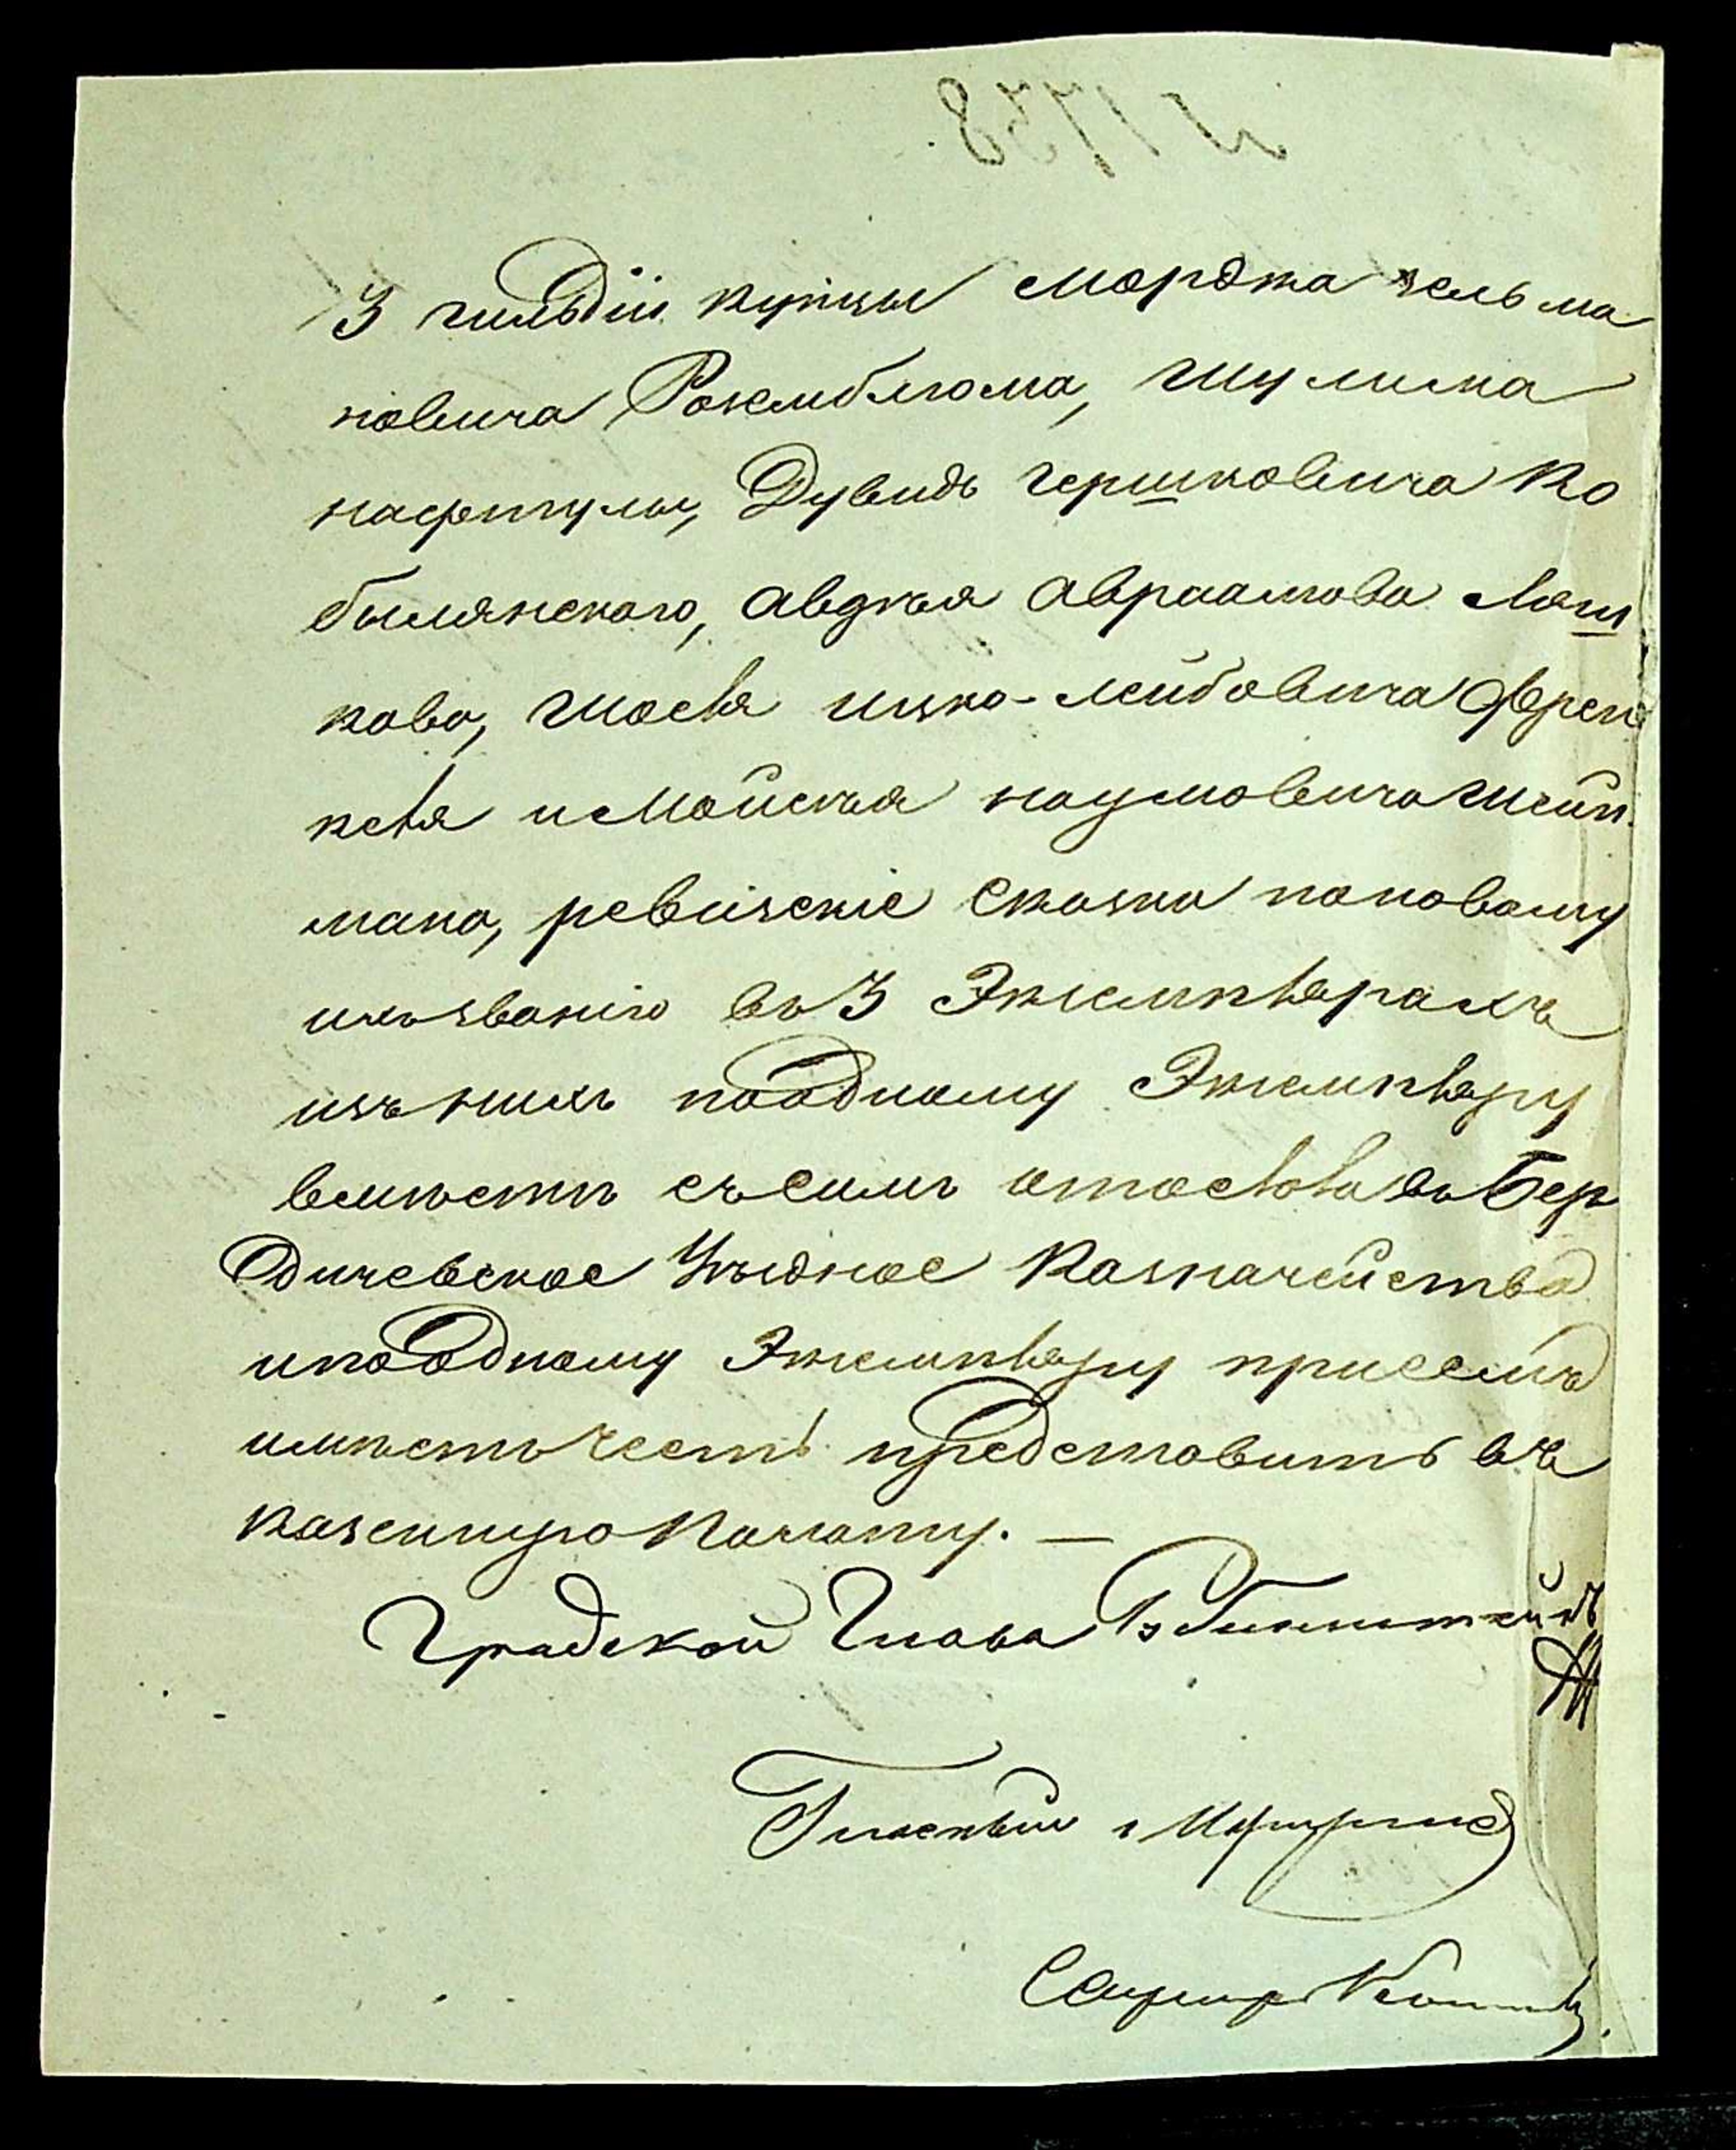 № 1738.
3 гильдіи купцы Мордка Зельма
новича Розенблюма, Шулима
Нафтулы, Дувидъ Гершковича Ко
былянскаго, Авдѣя Авраамова Маш
кова, Шоеля Ицко-Лейбовича Френ
келя и Мойсѣя Наумовича Шейн
мана, ревизскіе сказки поновому
ихъ званію въ 3 Экземплярахъ
изъ нихъ поодному Экземпляру
вмѣстѣ съ симъ отослала въ Бер
дичевское Уѣздное Казначейство
и поодному Экземпляру присемъ
имѣетъ честь представить въ
Казенную Палату. —
Градской Глава
Гласный